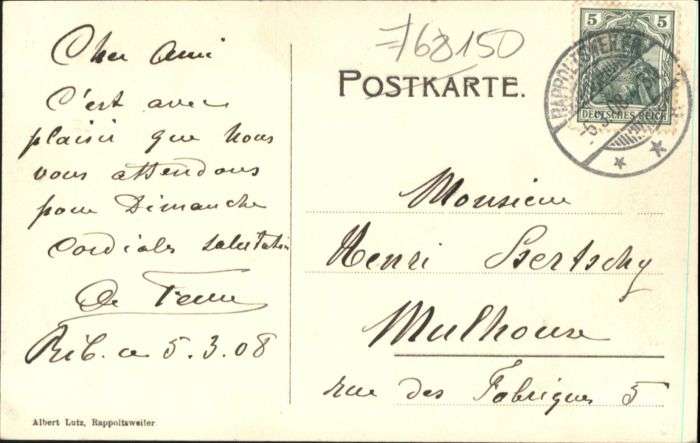 Cher Ami
C'est avec
plaisir que nous
vous attendons
pour Dimanche
Cordiales salutations
Rib. 5.3.08
Albert Lutz, Rappoltsweiler
768150
POSTKARTE.
5 5
DEUTSCHES REICH
RAPPOLTSWEILER
5.3.08
Monsieur
Henri
Mulhouse
rue des Fabriques 5